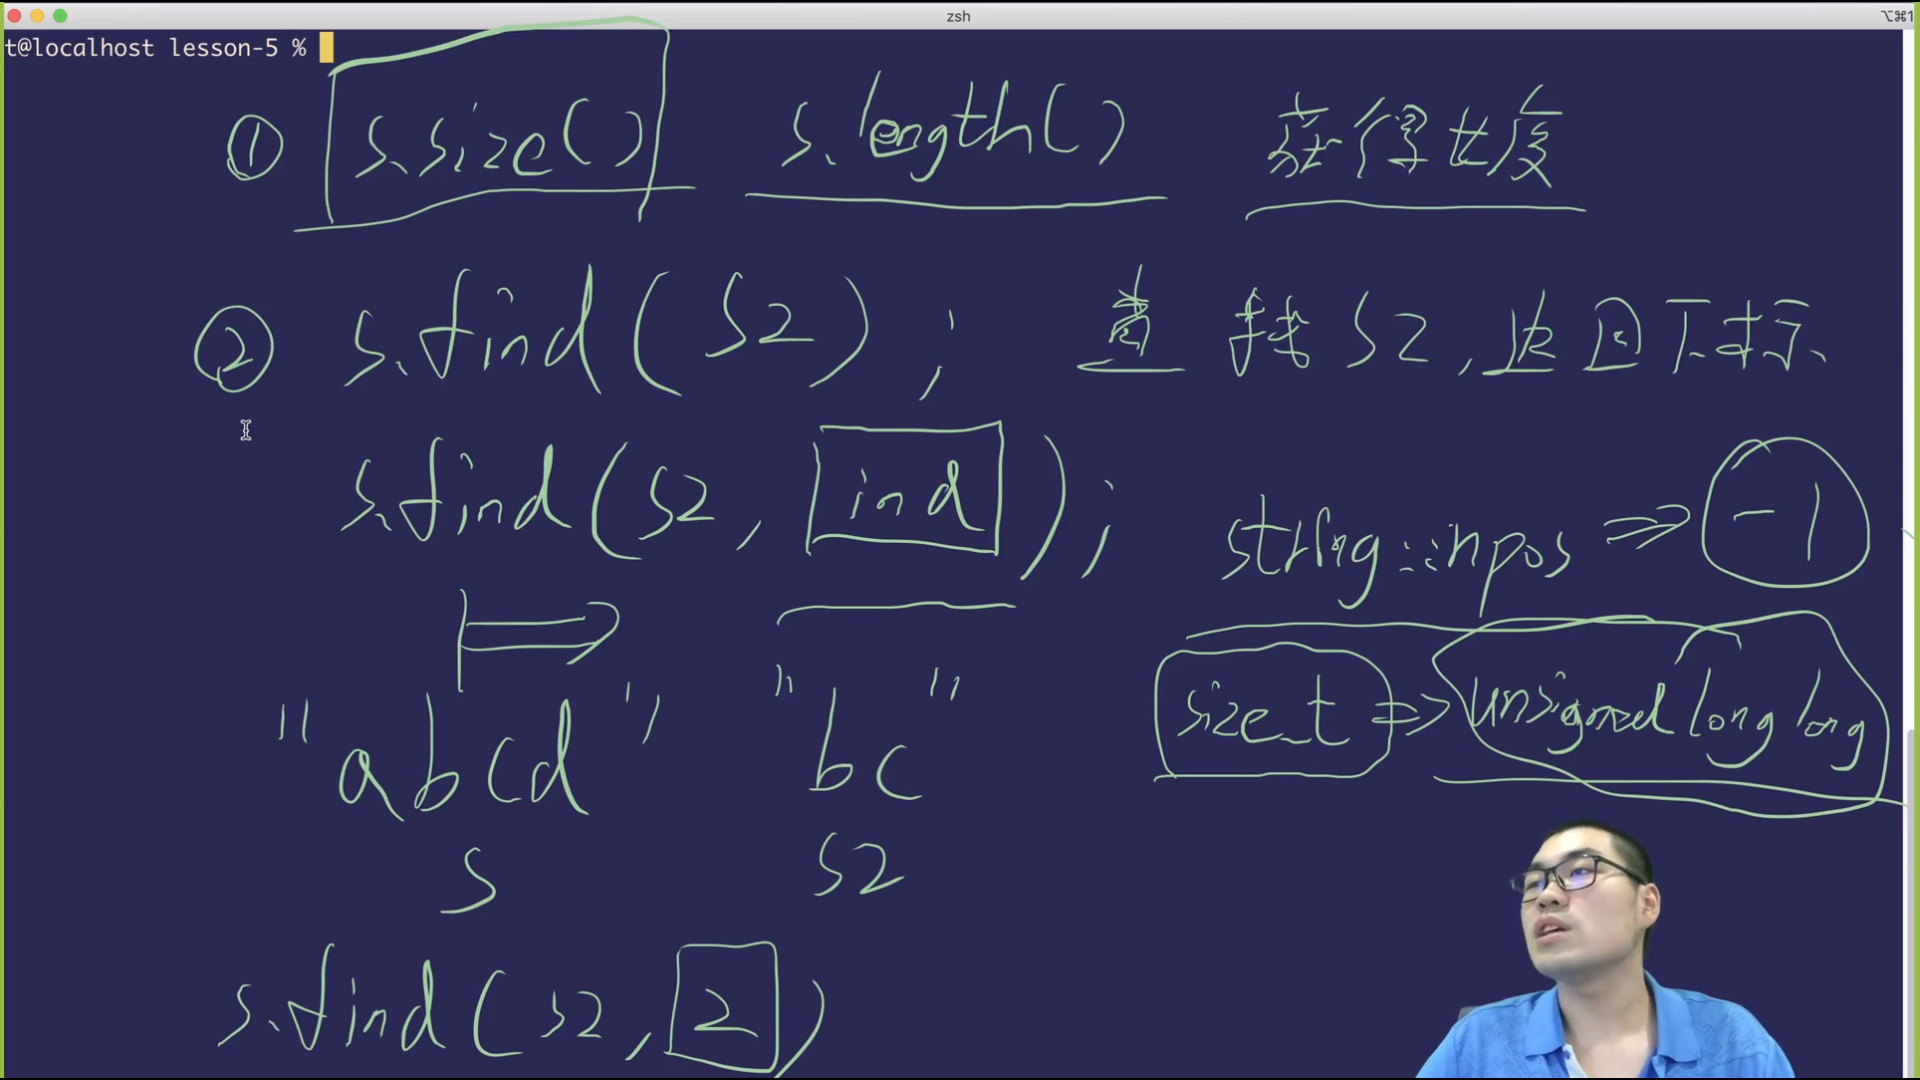 zsh
⌥⌘1
t@localhost lesson-5 %
① s.size() s.length() 获得长度
② s.find(s2); 查找s2,返回下标
s.find(s2, ind);
string::npos => -1
size_t => unsigned long long
"abcd" "bc"
s s2
s.find(s2, 2)